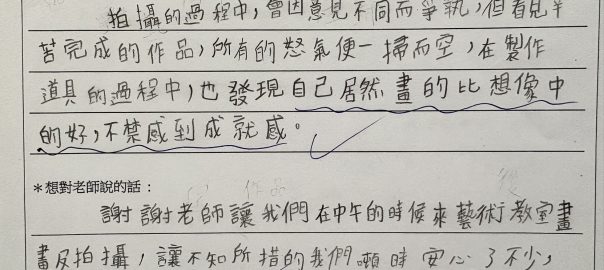 拍攝的過程中,會因意見不同而爭執,但看見辛
苦完成的作品,所有的怒氣便一掃而空,在製作
道具的過程中,也發現自己居然畫的比想像中
的好,不禁感到成就感。
*想對老師說的話:
謝謝老師讓我們在中午的時候來藝術教室畫
畫及拍攝,讓不知所措的我們頓時安心了不少,